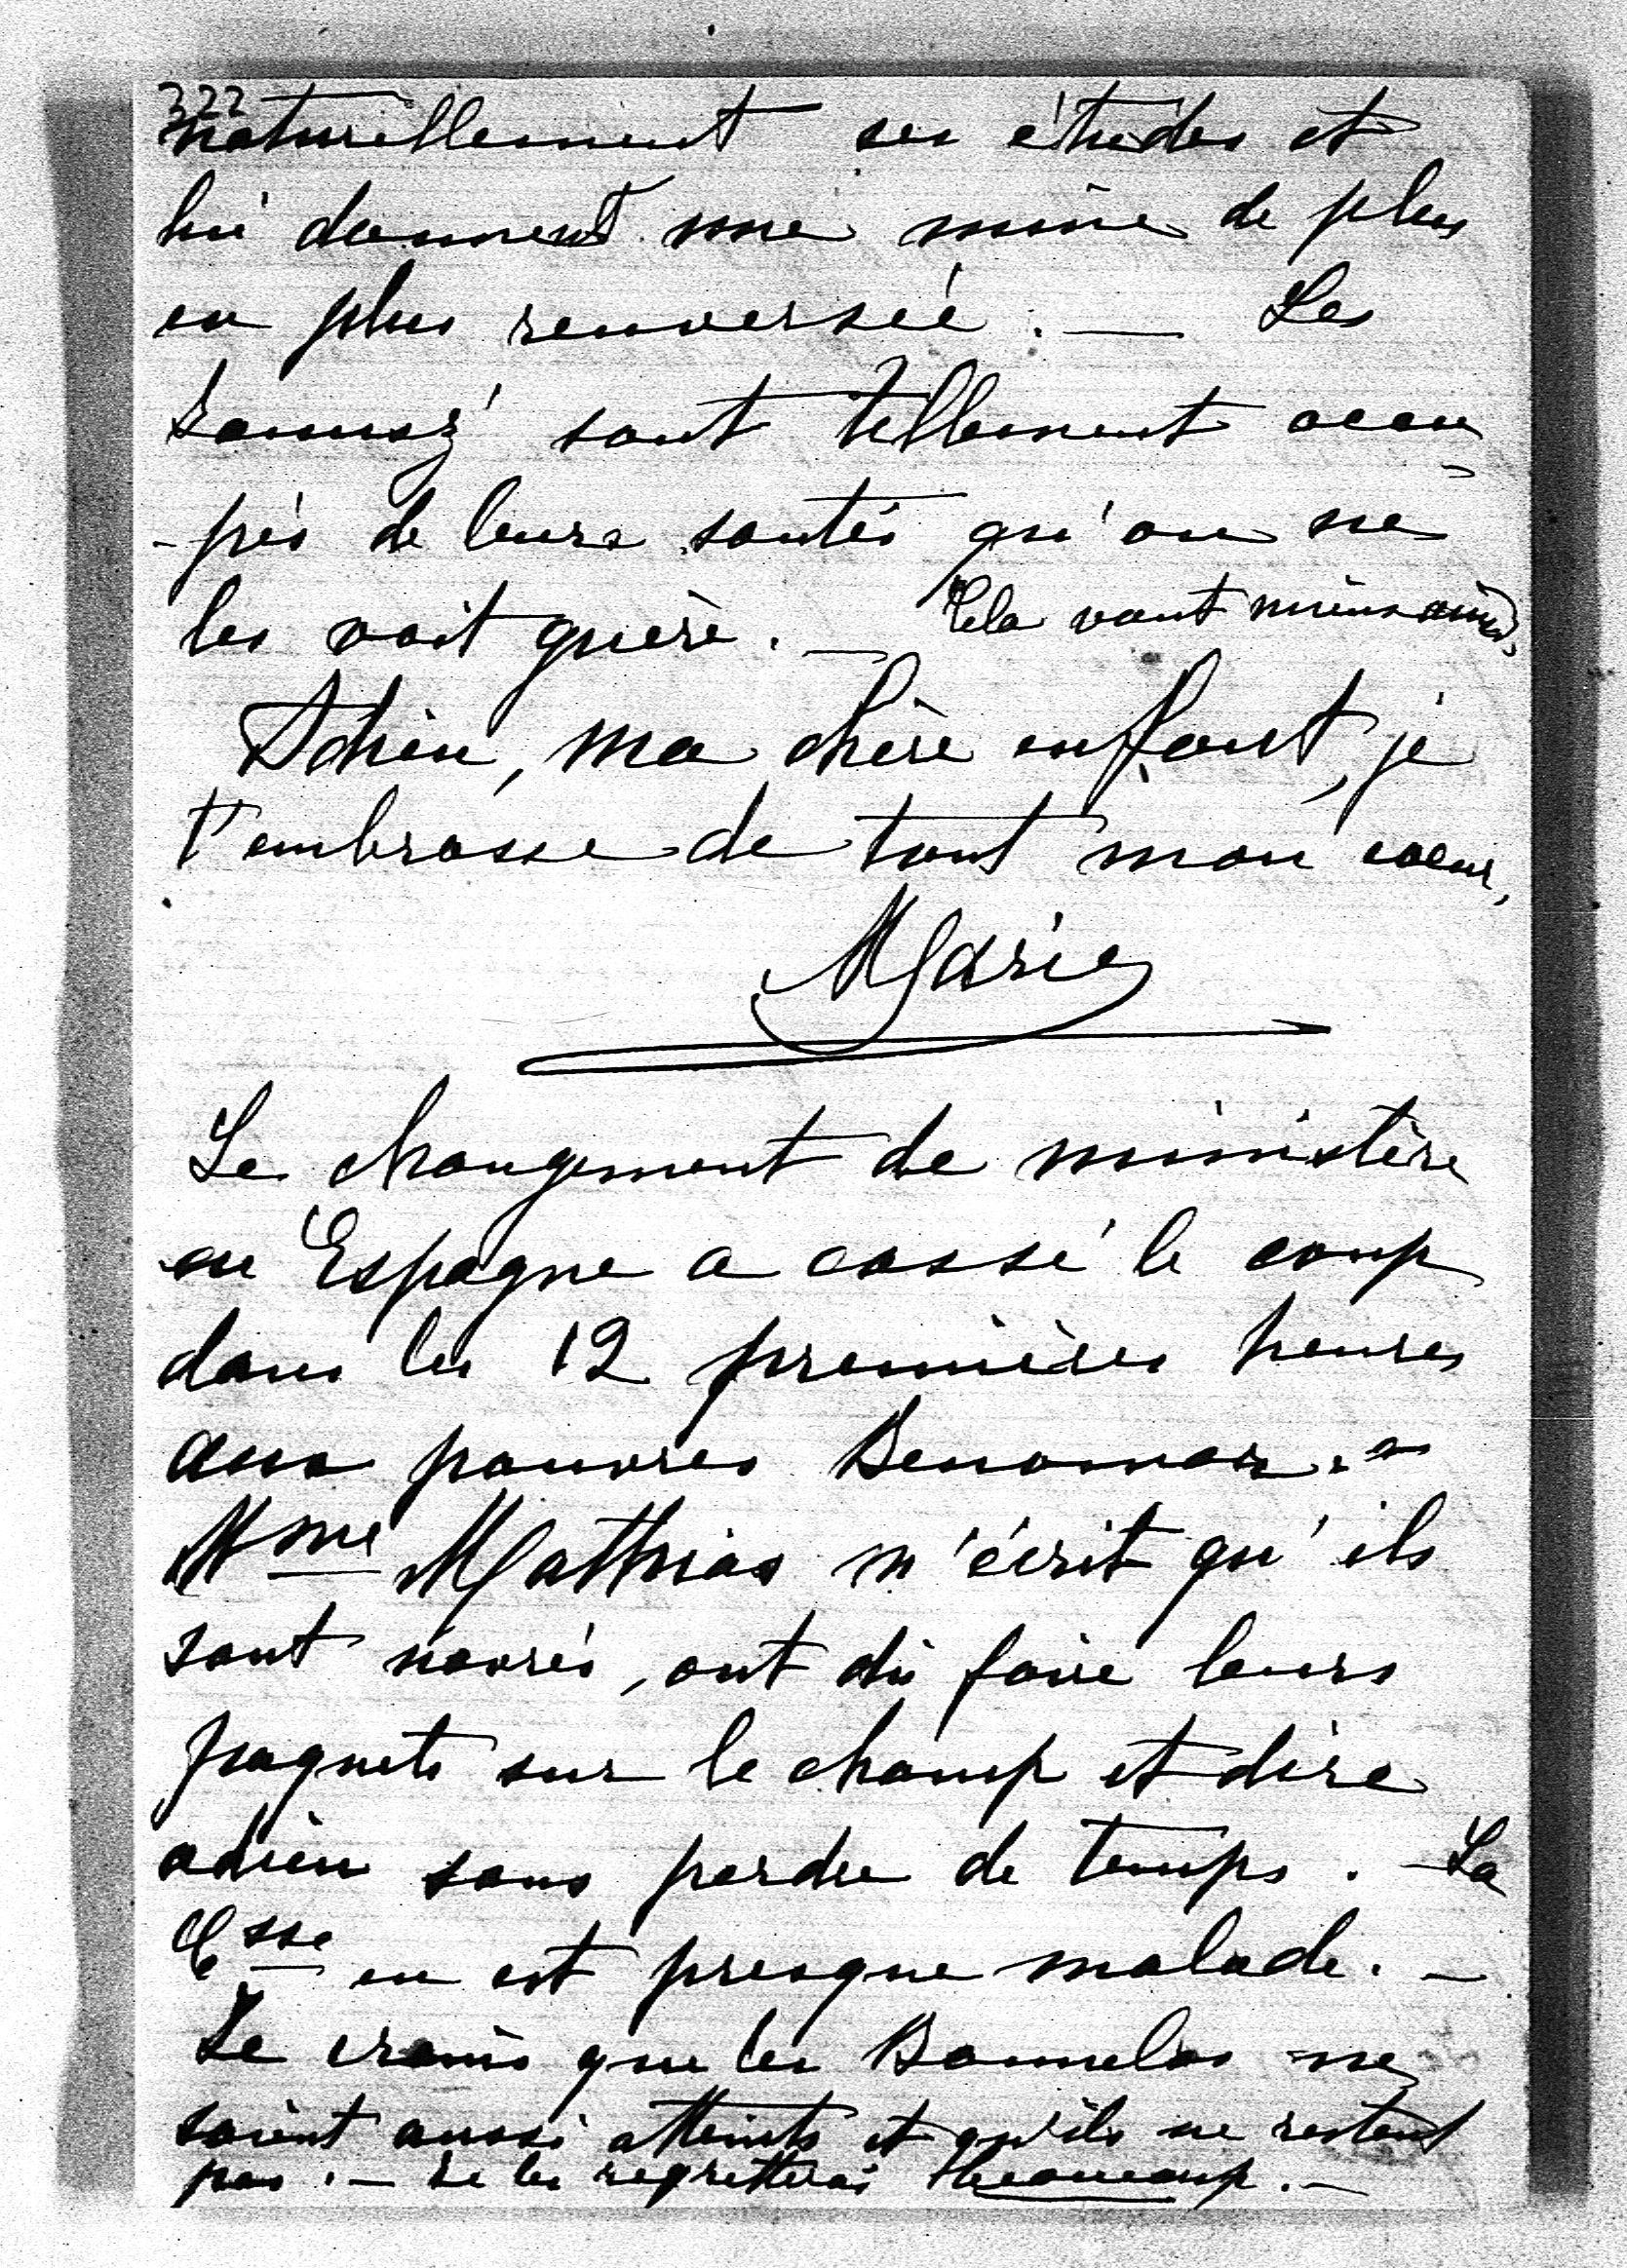 322
naturellement ses études et
lui donnent une mine de plus
en plus renversée. — Les
sont tellement occu
-pés de leurs santés qu'on ne
les voit guère. — Cela vaut mieux ainsi,
Adieu, ma chère enfant, je
t'embrasse de tout mon coeur,
Marie
Le changement de ministère
en Espagne a cassé le coup
dans les 12 premières heures
aux pauvres Benomar. —
Mme Mathias m'écrit qu'ils
sont navrés, ont dû faire leurs
paquets sur le champ et dire
adieu sans perdre de temps. — La
Csse en est presque malade. —
Je crains que les ne
soient aussi atteints et qu'ils ne restent
pas. — Je les regretterai beaucoup. —